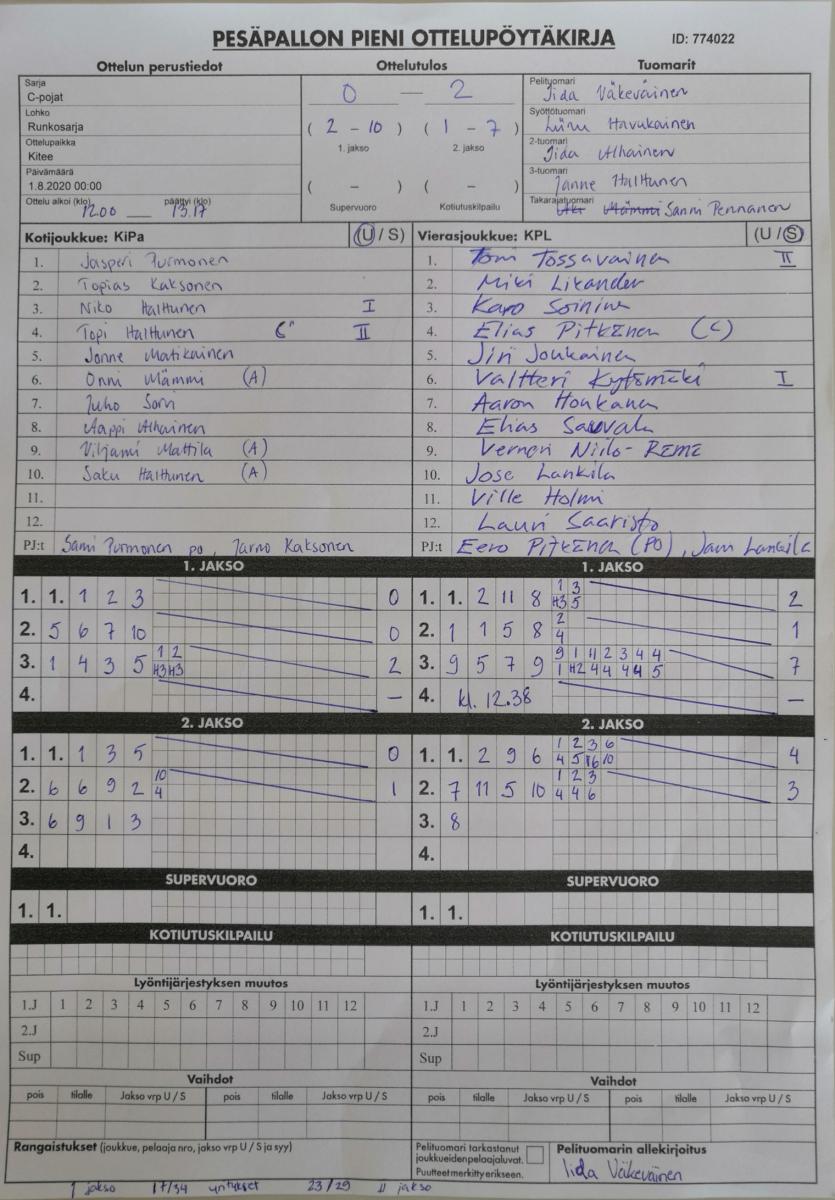 PESÄPALLON PIENI OTTELUPÖYTÄKIRJA ID: 774022
Ottelun perustiedot Ottelutulos Tuomarit
Sarja
C-pojat
Lohko
Runkosarja
Ottelupaikka
Kitee
Päivämäärä
1.8.2020 00:00
Ottelu alkoi (klo) päättyi (klo)
12.00 13.17
0 — 2
( 2 - 10 ) ( 1 - 7 )
1. jakso 2. jakso
( - ) ( - )
Supervuoro Kotiutuskilpailu
Pelituomari
Iida Väkeväinen
Syöttötuomari
Havukainen
2-tuomari
Iida Alhainen
3-tuomari
Janne Halttunen
Takarajatuomari Sanni Pennanen
Kotijoukkue: KiPa (U / S)
1. Jasperi Purmonen
2. Topias Kaksonen
3. Niko Halttunen I
4. Topi Halttunen C II
5. Jonne Matikainen
6. Onni Mämmi (A)
7. Juho Sorvi
8. Aappi Alhainen
9. Viljami Mattila (A)
10. Saku Halttunen (A)
11.
12.
PJ:t Sami Purmonen po, Jarno Kaksonen
Vierasjoukkue: KPL (U / S)
1. Tomi Tossavainen II
2. Miki Likander
3. Karo Soininen
4. Elias Pitkänen (C)
5. Jiri Joukainen
6. Valtteri Kytömäki I
7. Aaron Honkanen
8. Elias Sauvala
9. Verneri Niilo-Rämä
10. Jose Lankila
11. Ville Holmi
12. Lauri Saaristo
PJ:t Eero Pitkänen (PO), Jani Lankila
1. JAKSO
1. 1. 1 2 3 0
2. 5 6 7 10 0
1 2
3. 1 4 3 5 H3 H3 2
4. –
1. JAKSO
1 3
1. 1. 2 11 8 H3 5 2
2
2. 1 1 5 8 4 1
9 1 H2 2 3 4 4
3. 9 5 7 9 1 H2 4 4 4 4 5 7
4. kl. 12.38 –
2. JAKSO
1. 1. 1 3 5 0
10
2. 6 6 9 2 4 1
3. 6 9 1 3
4.
2. JAKSO
1 2 3 6
1. 1. 2 9 6 4 5 6 10 4
1 2 3
2. 7 11 5 10 4 4 6 3
3. 8
4.
SUPERVUORO SUPERVUORO
1. 1. 1. 1.
KOTIUTUSKILPAILU KOTIUTUSKILPAILU
Lyöntijärjestyksen muutos Lyöntijärjestyksen muutos
1.J 1 2 3 4 5 6 7 8 9 10 11 12 1.J 1 2 3 4 5 6 7 8 9 10 11 12
2.J 2.J
Sup Sup
Vaihdot Vaihdot
pois tilalle Jakso vrp U / S pois tilalle Jakso vrp U / S pois tilalle Jakso vrp U / S pois tilalle Jakso vrp U / S
Rangaistukset (joukkue, pelaaja nro, jakso vrp U / S ja syy)
Pelituomari tarkastanut
joukkueiden pelaajaluvat.
Puutteet merkitty erikseen.
Pelituomarin allekirjoitus
Iida Väkeväinen
1 jakso 17/34 yritykset 23/29 II jakso